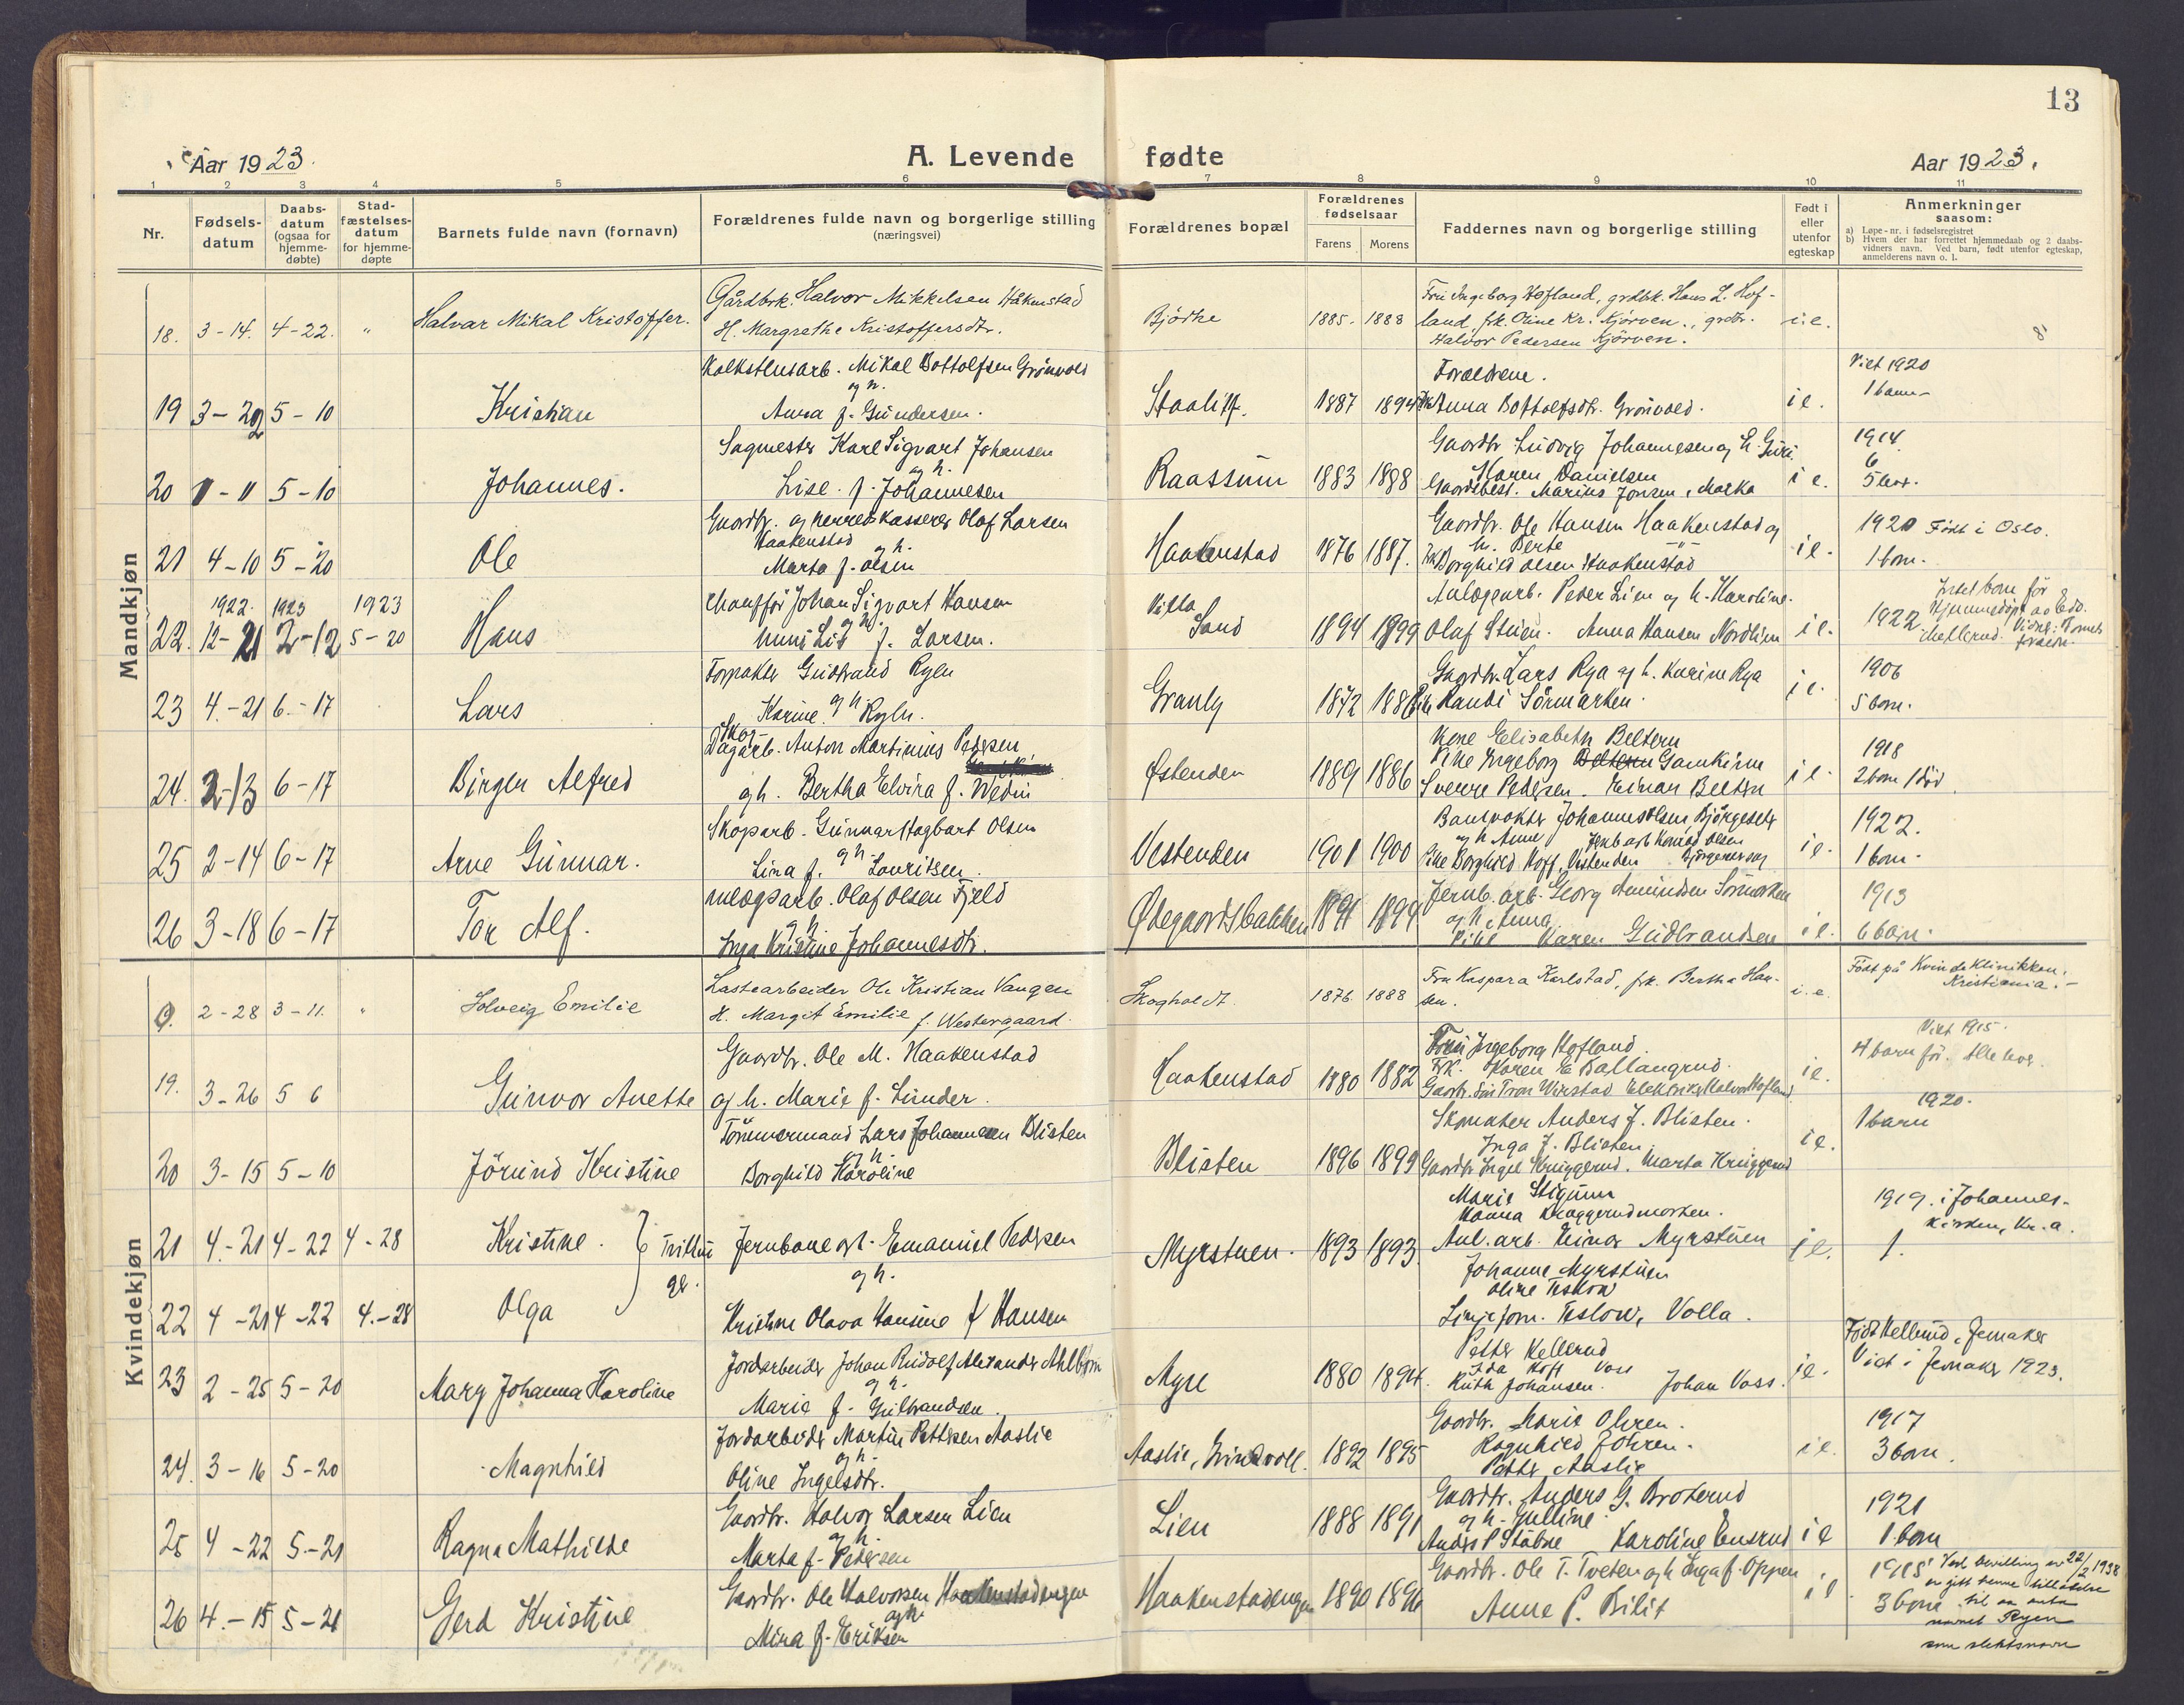 13
Aar 1923.
A. Levende fødte
Aar 1923.
1 2 3 4 5 6 7 8 9 10 11
Nr.
Fødsels-
datum
Daabs-
datum
(ogsaa for
hjemme-
døbte)
Stad-
fæstelses-
datum
for hjemme-
døpte
Barnets fulde navn (fornavn)
Forældrenes fulde navn og borgerlige stilling
(næringsvei)
Forældrenes bopæl
Forældrenes
fødselsaar
Farens Morens
Faddernes navn og borgerlige stilling
Født i
eller
utenfor
egteskap
Anmerkninger
saasom:
a) Løpe-nr. i fødselsregistret
b) Hvem der har forrettet hjemmedaab og 2 daabs-
vidners navn. Ved barn, født utenfor egteskap,
anmelderens navn o. l.
Mandkjøn
18. 3-14. 4-22. " Halvar Mikal Kristoffer.
Gårdbrk. Halvor Mikkelsen Håkenstad
H. Margrethe Kristoffersdtr.
Bjørke 1885. 1888
Fru Ingeborg Hofland, grdbk. Hans L. Hof-
land, frk. Oline Kr. Kjørven., grdbr.
Halvor Pedersen Kjørven.
i.e.
19 3-29 5-10 Kristian
Mikal Bottolfsen Grønvold
og h.
Anna f. Gundersen.
1887 1894
Forældrene.
Anna Bottolfsdtr. Grønvold.
i e.
Viet 1920
1 barn
20 5-10 Johannes.
Sagmester Karl Sigvart Johansen
og h.
Lise f. Johannesen
Raassum 1883 1888
Gaardbr. Ludvig Johannesen og h. Guri
Karen Danielsen
Gaardbest. Marius Jonsen, Marka
i e.
1914
6
21 4-10 5-20 Ole
Gaardbr. og herredskasserer Olaf Larsen
Haakenstad og h.
Marta f. Olsen
Haakenstad 1876 1887.
Gaardbr. Ole Hansen Haakenstad og
h. Berte -"-
Frk Borghild Olsen Haakenstad
i e.
1920 Født i Oslo.
1 barn.
1922. 1923 1923
22. 12-21 2-12 5-20 Hans
Chauffør Johan Sigvart Hansen
og h.
f. Larsen.
Villa
Sand 1894 1899
Anlægsarb. Peder Lien og h. Karoline.
Olaf Stuen. Anna Hansen Nordlien
i e.
1922
23 4.-21 6.-17 Lars
Forpakter Gudbrand Ryen
Karine og h Ryen.
Granly 1872 1886
Gaardbr. Lars Rya og h. Karine Rya
Randi Sørmarken.
i e.
1906
5 barn.
24. 2-13 6-17 Birger Alfred
Skog-
Dagarb. Anton Martinius Pedersen
og h. Bertha Elvira f. Wedin
Østenden 1889 1886
Kone Elisabeth Beltern
Pike Ingeborg Beltern Gamkinn
Sverre Pedersen. Einar Beltern
i e.
1918
2 barn 1 død.
25 2-14 6-17 Arne Gunnar.
Skogarb. Gunnar Hagbart Olsen
og h.
Lina f. Lauritsen.
Vestenden 1901 1900
Banevokter Johannes Olsen, Bjørgeseter
og h Anne Jernb arb Konrad Olsen
Pike Borghild Hoff, Vestenden
i e.
1922.
1 barn.
26 3-18 6-17 Tor Alf.
Anlægsarb. Olaf Olsen Fjeld
og h.
Inga Kristine Johannesdtr.
Ødegaardsbakken 1891 1894
Jernb. arb. Georg Amundsen Sørmarken
og h. Anna
Pike Karen Gudbrandsen
i e.
1913
6 barn.
Kvindekjøn
2-28 3-11. " Solveig Emilie
Lastearbeider Ole Kristian Vangen
H. Margit Emilie f. Westergaard.
Skogholdt. 1876 1888
Fru Kaspara Karlstad, frk. Bertha Han-
sen.
i.e.
Født på Kvindeklinikken,
Kristiania.
19. 3-26 5 6 Gunvor Anette
Gaardbr. Ole M. Haakenstad
og h. Marie f. Lunder.
Haakenstad 1880 1882
Fru Ingeborg Hofland.
Frk. Karen E Ballangrud.
i e.
Viet 1915.
4 barn før.
20 3-15 5-10 Jørund Kristine
Tømmermand Lars Johannesen Blisten
og h.
Borghild Karoline
Blisten 1896 1899
Skomaker Anders J. Blisten.
Inga J. Blisten.
Gaardbr Ingel Kruggerud. Marta Kruggerud
i e.
1920.
1 barn
21 4.-21 4-22 4-28 Kristine.
Tvillin
ger.
Jernbanearb. Emanuel Pedersen
og h.
Kristine Olava Hansine f Hansen
Myrstuen. 1893 1893.
Marie Stigum
Hanna Kruggerudmarken.
Anl. arb. Einar Myrstuen
Johanne Myrstuen
Oline Teslow
Linjeform. Teslow, Volla.
i e.
1919. i Johannes-
kirken, Kr.a.
1.
22 4-21 4-22 4.-28 Olga
23 2-25 5-20 Mary Johanna Karoline
Jordarbeider Johan Rudolf Alexander Ahlbom
og h.
Marie f. Gulbrandsen.
Myre 1880 1894.
Petter Kellerud
Ida Hoff Voss
Ruth Johansen. Johan Voss.
i e.
Født Hellerud, Jevnaker
Viet i Jevnaker 1923.
24. 3-16 5-20 Magnhild
Jordarbeider Martin Pettersen Aaslie
og h.
Oline Ingelsdtr.
Aaslie, Grindvoll. 1892 1895
Gaardbr. Marie Ohren.
Ragnhild J Ohren.
Petter Aaslie
i e.
1917
3 barn.
25 4-22 5-21 Ragna Mathilde
Gaardbr. Halvor Larsen Lien
og h.
Marta f. Pedersen
Lien 1888 1891
Gaardbr. Anders G. Broterud
og h. Gulline.
Anders P Støbne Karoline Ensrud
i e
1921
1 barn
26 4.-15 5-21 Gerd Kristine
Gaardbr. Ole Halvorsen Haakenstadengen
og h.
Mina f. Eriksen
Haakenstadengen 1890 1896
Gaardbr. Ole T. Tveten og h Inga f. Oppen
Anne P. Bilit
i e
1915
3 barn
Ved bevilling av 22/2 1938
er gitt henne tillatelse
til aa anta
navnet Ryen
som slektsnavn